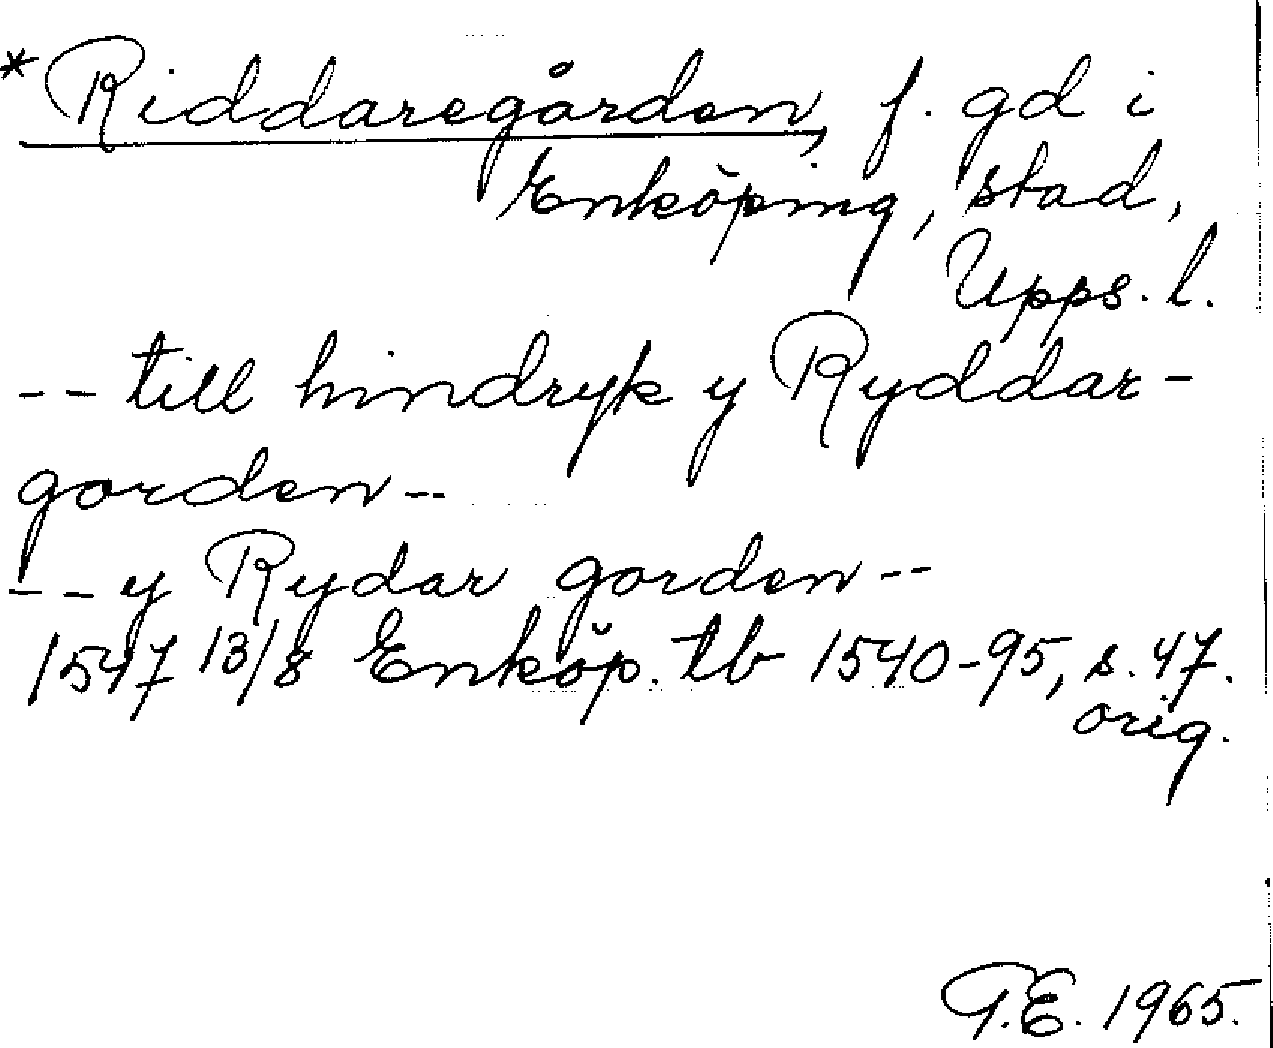 *Riddaregården, f. gd i
Enköping, stad,
Upps. l.
-- till hindryk y Ryddar-
gorden --
-- y Rydar gorden --
1547 13/8 Enköp. tb 1540-95, s. 47.
orig.
T.E. 1965.